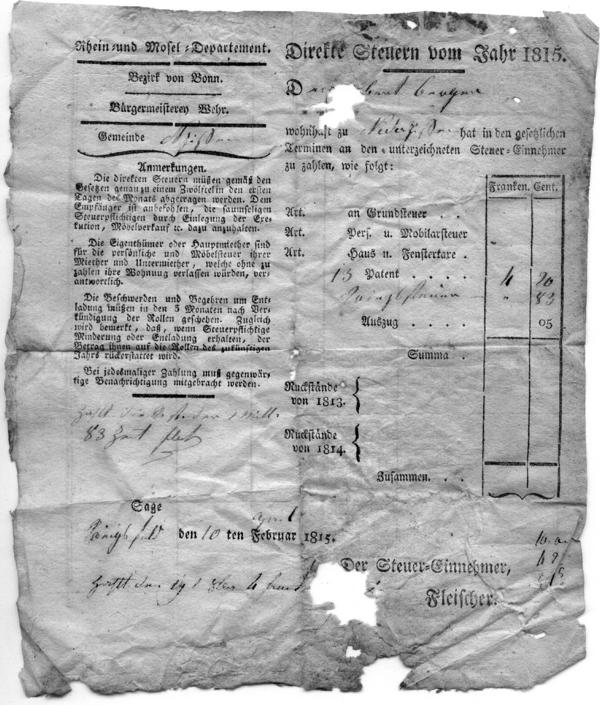 Rhein-und Mosel-Departement.
Bezirk von Bonn.
Bürgermeisterey Wehr.
Gemeinde
Anmerkungen.
Die direkten Steuern müßen gemäß den
Gesezen genau zu einem Zwölftel in den ersten
Tagen des Monats abgetragen werden. Dem
Empfänger ist anbefohlen, die saumseligen
Steuerpflichtigen durch Einlegung der Exe-
kution, Möbelverkauf ꝛc. dazu anzuhalten.
Die Eigenthümer oder Hauptmiether sind
für die persönliche und Möbelsteuer ihrer
Miether und Untermiether, welche ohne zu
zahlen ihre Wohnung verlassen würden, ver-
antwortlich.
Die Beschwerden und Begehren um Ent-
ladung müßen in den 3 Monaten nach Ver-
kündigung der Rollen geschehen. Zugleich
wird bemerkt, daß, wenn Steuerpflichtige
Minderung oder Entladung erhalten, der
Betrag ihnen auf die Rollen des zukünftigen
Jahrs rückerstattet wird.
Bei jedesmaliger Zahlung muß gegenwär-
tige Benachrichtigung mitgebracht werden.
83
Direkte Steuern vom Jahr 1815.
D
wohnhaft zu hat in den gesetzlichen
Terminen an den unterzeichneten Steuer-Einnehmer
zu zahlen, wie folgt:
Franken. Cent.
Art. an Grundsteuer . .
Art. Pers. u. Mobilarsteuer
Art. Haus u. Fenstertaxe .
13 Patent . . . . . 4 20
" 83
Auszug . . . . . 05
Summa .
Ruckstände
von 1813.
Ruckstände
von 1814.
Zusammen. . .
Sage
den 10 ten Februar 1815.
Der Steuer-Einnehmer,
Fleischer.